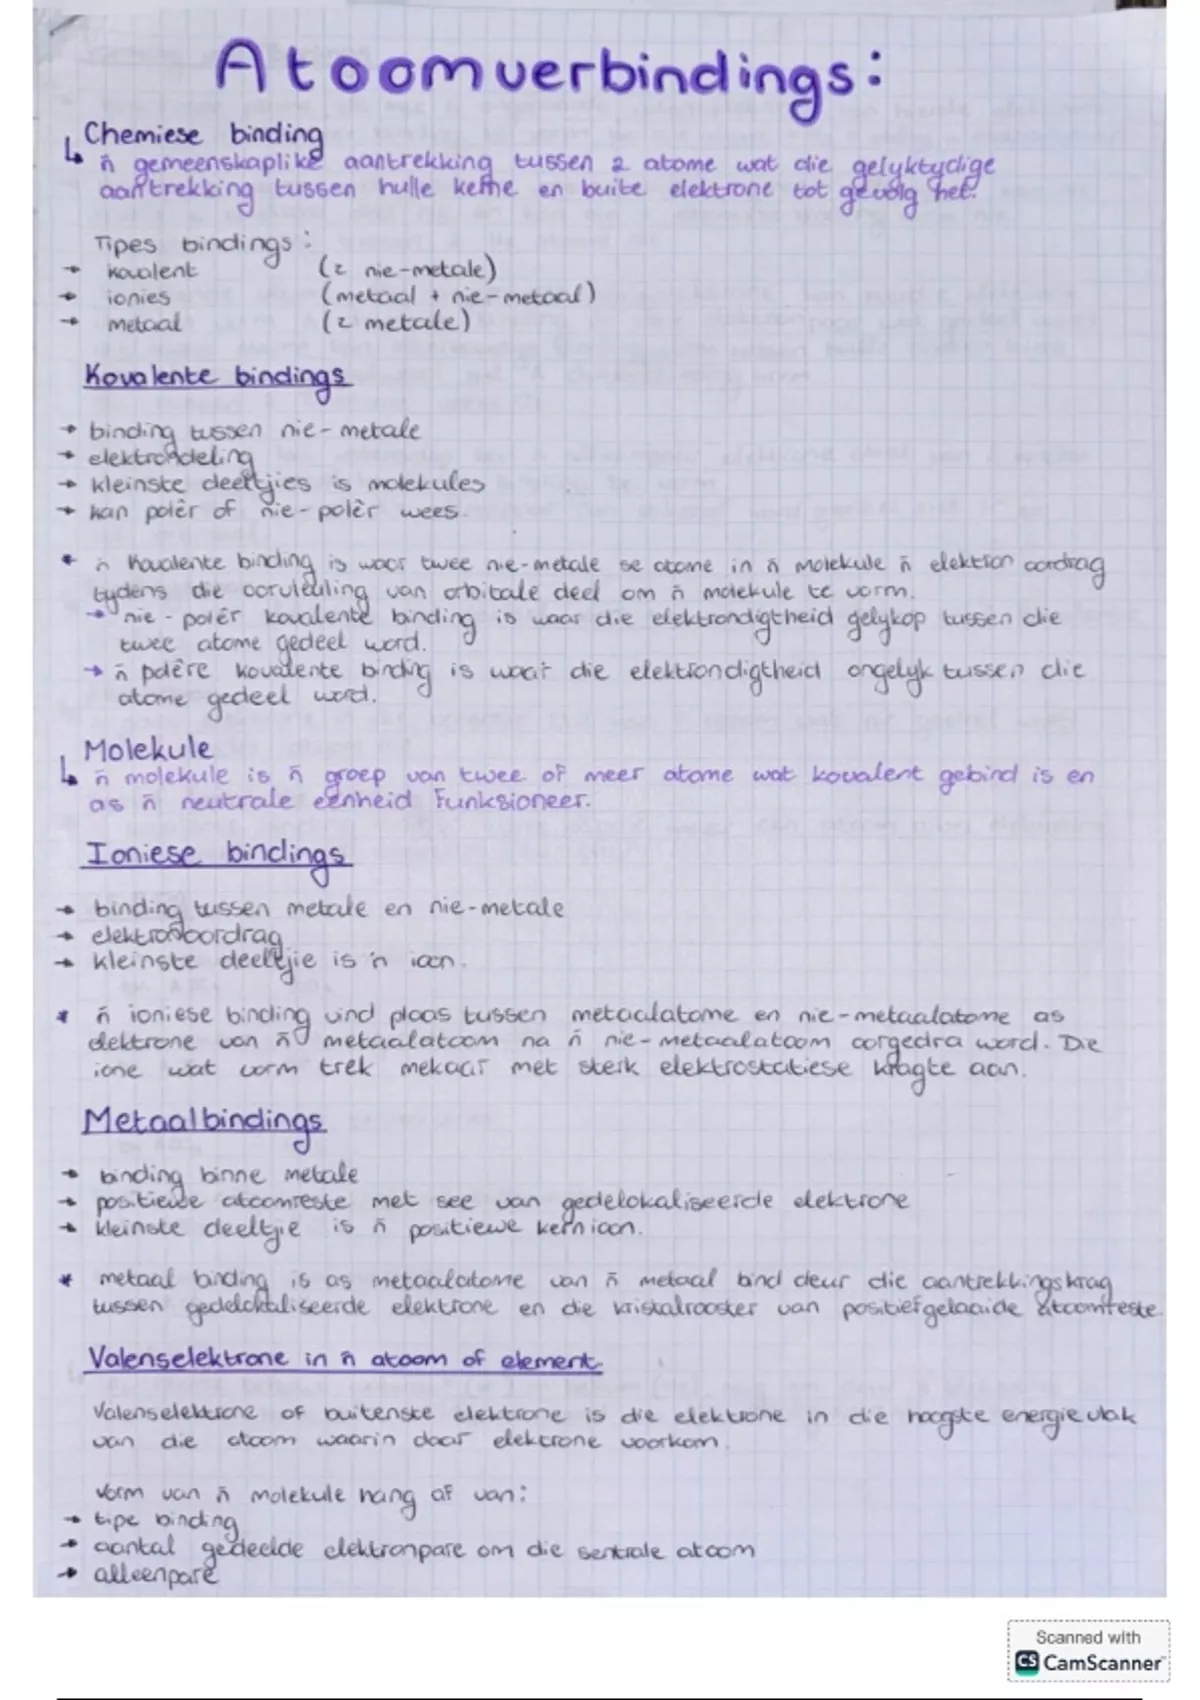 Atoomverbindings:
Chemiese binding
↳ ñ gemeenskaplike aantrekking tussen 2 atome wat die gelyktydige
aantrekking tussen hulle kerne en buite elektrone tot gevolg het.
Tipes bindings:
→ kovalent (2 nie-metale)
→ ionies (metaal + nie-metaal)
→ metaal (2 metale)
Kovalente bindings
→ binding tussen nie-metale
→ elektrondeling
→ kleinste deeltjies is molekules
→ kan polêr of nie-polêr wees.
* ñ Kovalente binding is waar twee nie-metale se atome in ñ molekule ñ elektron oordrag
tydens die oorvleuling van orbitale deel om ñ molekule te vorm.
→ nie-polêr kovalente binding is waar die elektrondigtheid gelykop tussen die
twee atome gedeel word.
→ ñ polêre kovalente binding is waar die elektrondigtheid ongelyk tussen die
atome gedeel word.
Molekule
↳ ñ molekule is ñ groep van twee of meer atome wat kovalent gebind is en
as ñ neutrale eenheid funksioneer.
Ioniese bindings
→ binding tussen metale en nie-metale
→ elektronoordrag
→ kleinste deeltjie is 'n ioon.
* ñ ioniese binding vind plaas tussen metaalatome en nie-metaalatome as
elektrone van ñ metaalatoom na ñ nie-metaalatoom oorgedra word. Die
ione wat vorm trek mekaar met sterk elektrostatiese kragte aan.
Metaalbindings
→ binding binne metale
→ positiewe atoomreste met see van gedelokaliseerde elektrone
→ kleinste deeltjie is ñ positiewe kernioon.
* metaal binding is as metaalatome van ñ metaal bind deur die aantrekkingskrag
tussen gedelokaliseerde elektrone en die kristalrooster van positiefgelaaide atoomreste.
Valenselektrone in ñ atoom of element.
Valenselektrone of buitenste elektrone is die elektrone in die hoogste energievlak
van die atoom waarin daar elektrone voorkom.
Vorm van ñ molekule hang af van:
→ tipe binding
→ aantal gedeelde elektronpare om die sentrale atoom
→ alleenpare
Scanned with
CS CamScanner